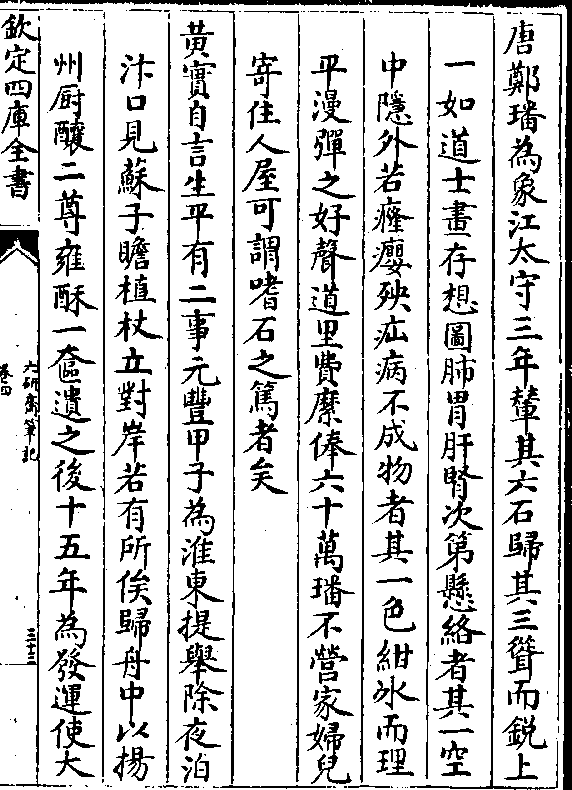 唐鄭璠為象江太守三年輦其六石歸其三聳而銳上
一如道士畫存想圖肺胃肝腎次第懸絡者其一空
中隱外若癃癭殃疝病不成物者其一色紺冰而理
平漫彈之好聲道里費縻俸六十萬璠不營家婦兒
寄住人屋可謂嗜石之篤者矣
黃實自言生平有二事元豐甲子為淮東提舉除夜泊
汴口見蘇子瞻植杖立對岸若有所俟歸舟中以揚
州厨釀二尊雍酥一奩遺之後十五年為發運使大
欽定四庫全書
六研齋筆記
卷四
三十三